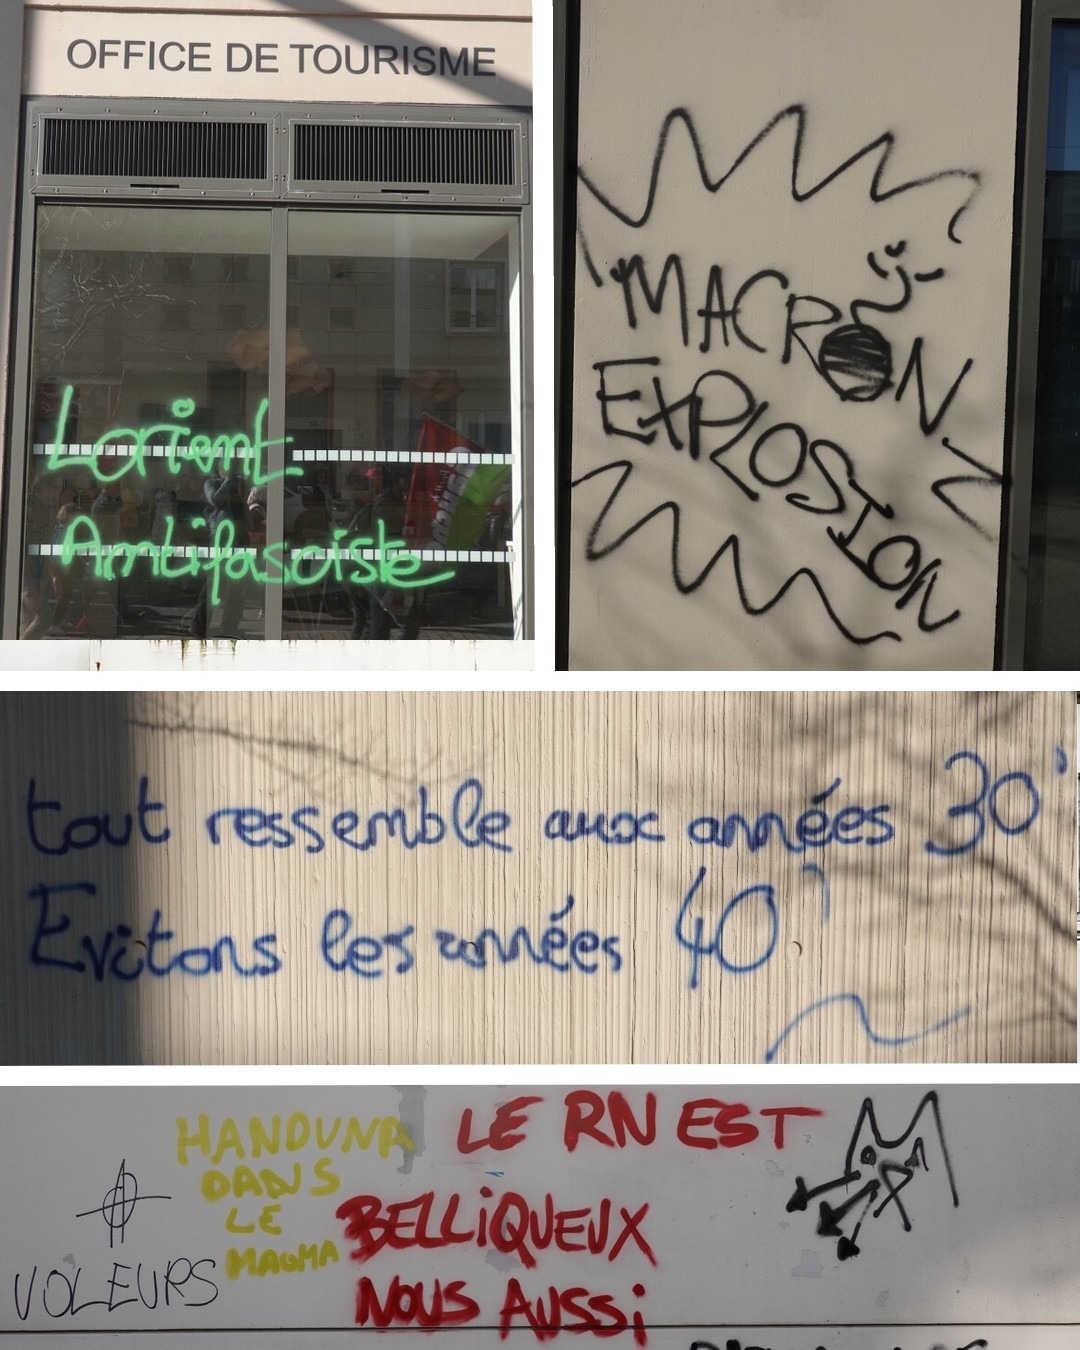 OFFICE DE TOURISME
Lorient
Antifasciste
MACRON
EXPLOSION
tout ressemble aux années 30'
Evitons les années 40'
HANOUNA
DANS
LE
MAGMA
VOLEURS
LE RN EST
BELLiQUEUX
NOUS AUSSi